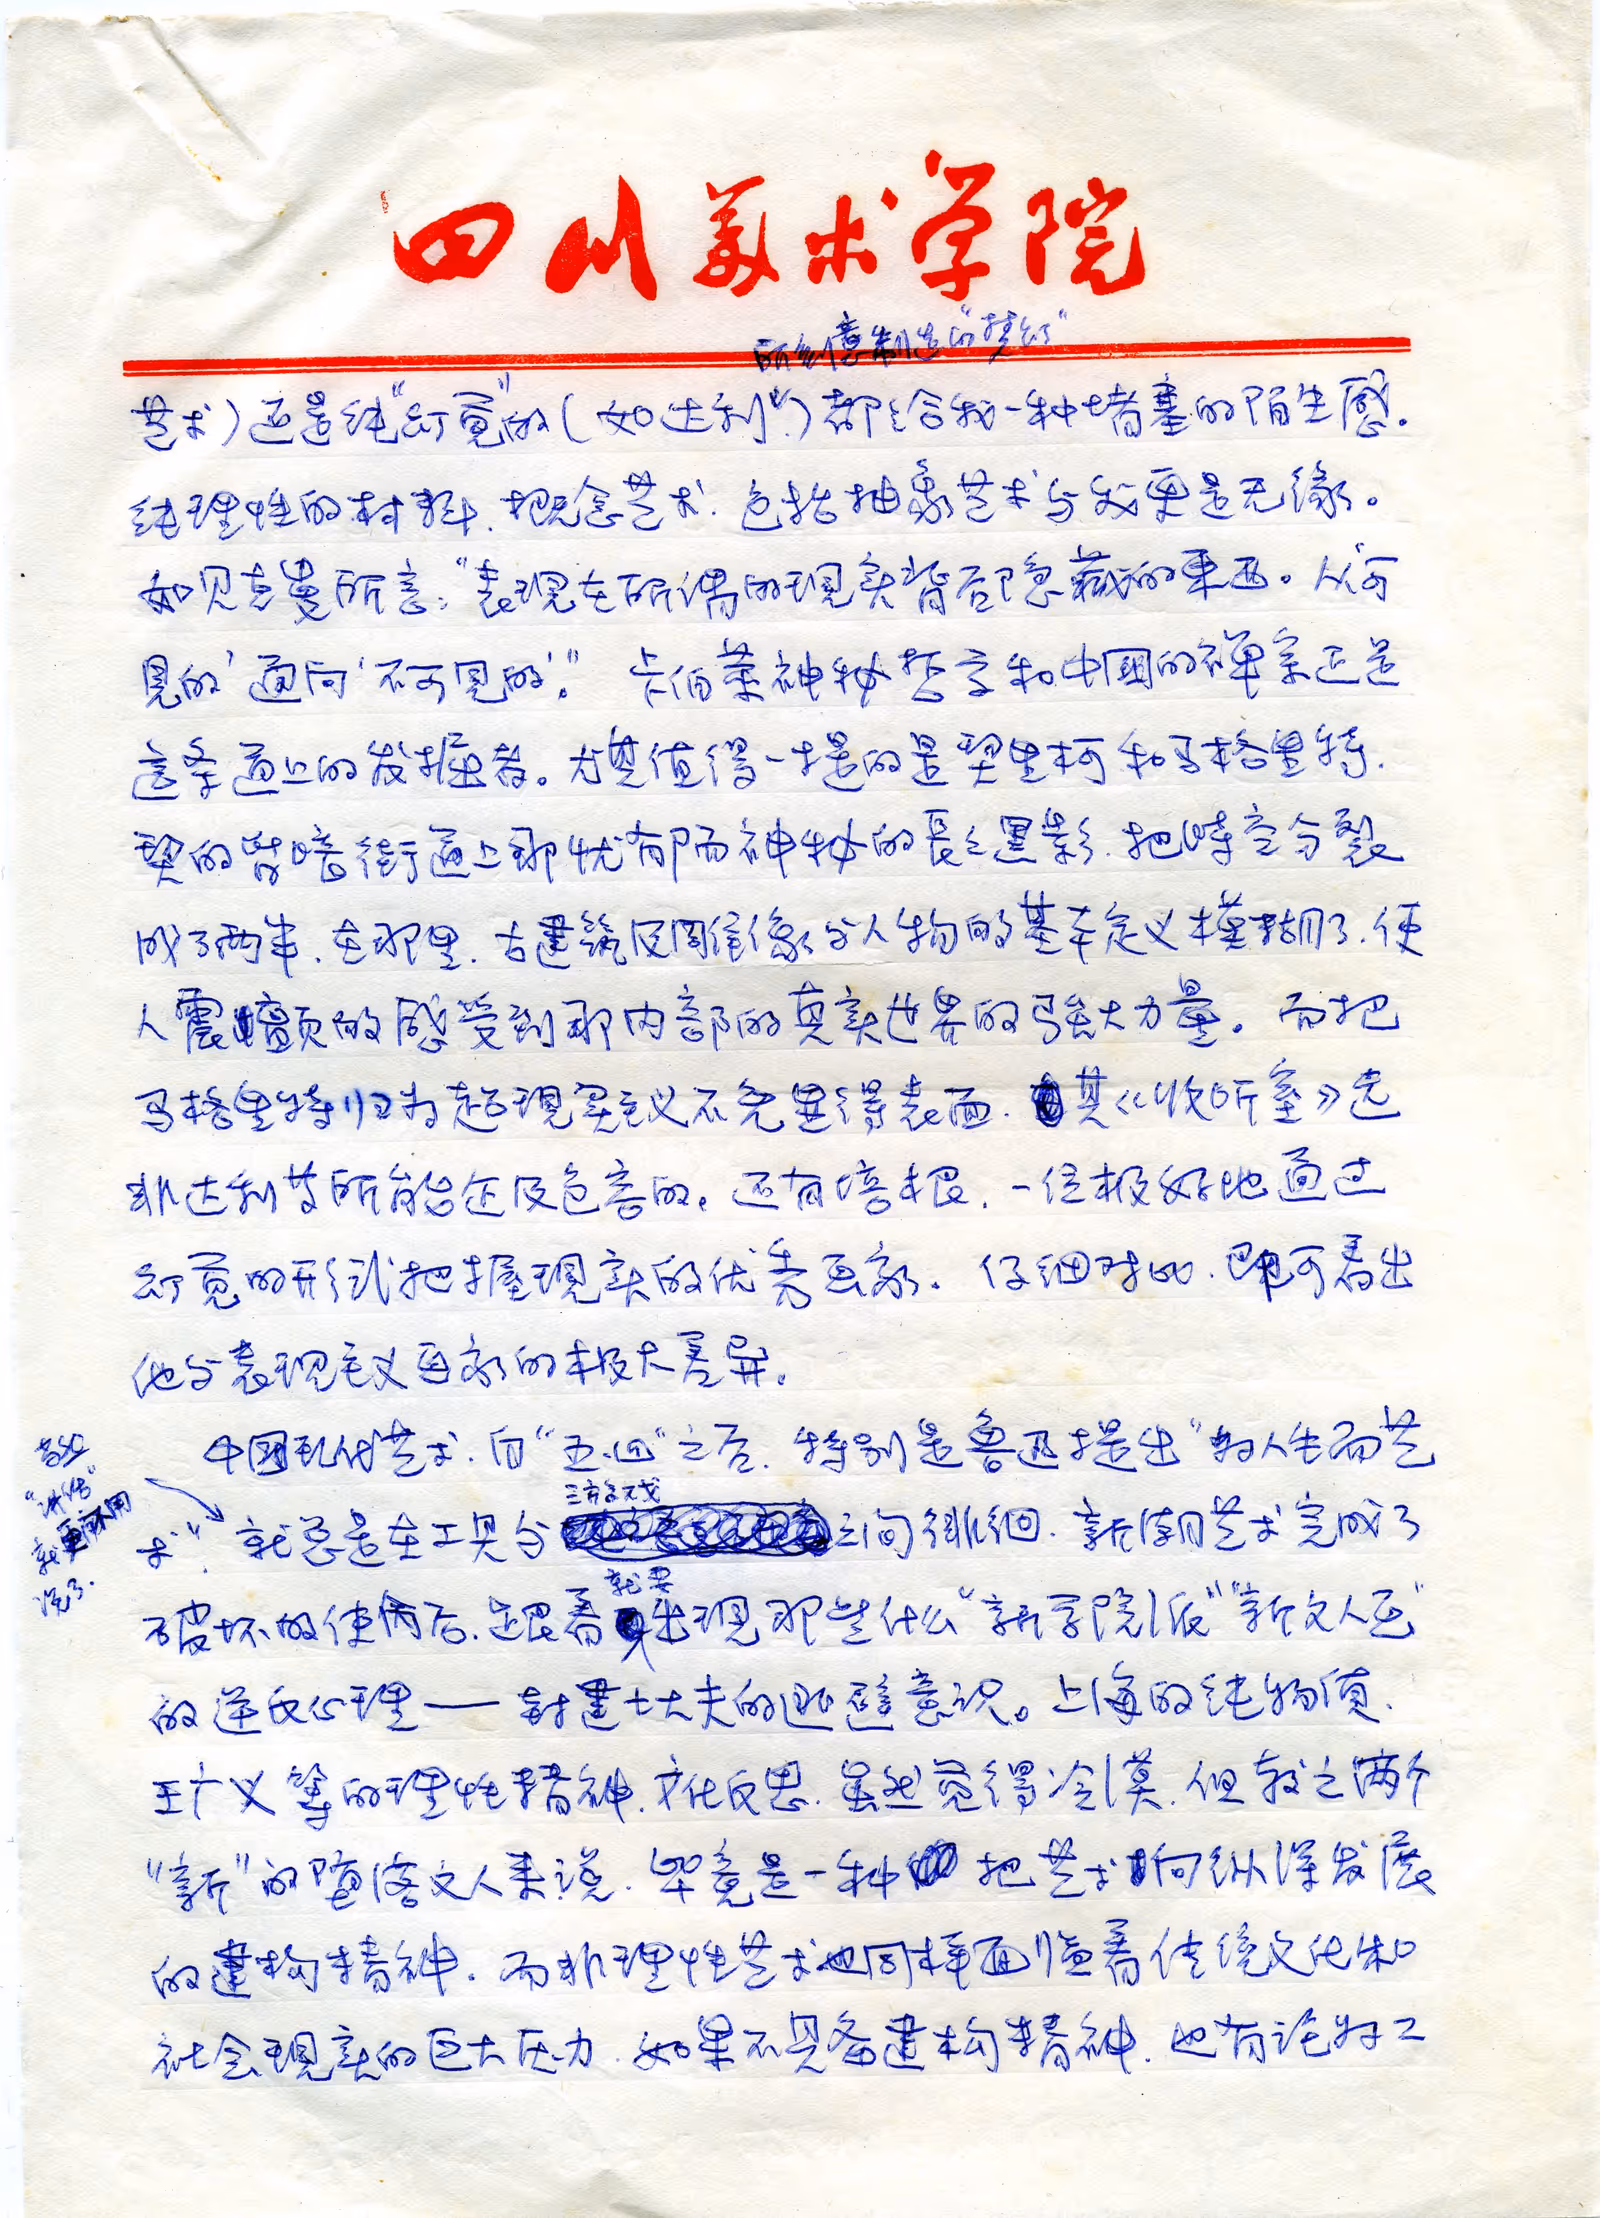 四川美术学院
所刻意制造的“梦幻”
艺术）还是纯“幻觉”的（如达利）都给我一种堵塞的陌生感。
纯理性的材料、概念艺术、包括抽象艺术与我更是无缘。
如贝克曼所言：“表现在所谓的现实背后隐藏的东西。从‘可
见的’通向‘不可见的’。”卡伯莱神秘哲学和中国的禅宗正是
这条道上的发掘者。尤其值得一提的是契里柯和马格里特、
契的背暗街道上那忧郁而神秘的長长黑影、把時空分裂
成了两半、在那里、古建筑及雕像与人物的基本定义模糊了、使
人震颤的感受到那内部的真实世界的强大力量。而把
马格里特归为超现实主义不免显得表面、其《收听室》远
非达利等所能企及包容的。还有培根、一位极好地通过
幻觉的形式把握现实的优秀画家。仔细对比、即可看出
他与表现主义画家的极大差异。
中国现代艺术、自“五.四”之后、特别是鲁迅提出“为人生而艺
“讲话”
就更不用
说了.
术”、就总是在工具与
之间徘徊、新潮艺术完成了
就要
破坏的使命后、跟着出现那些什么“新学院派”“新文人画”
的逆反心理——封建士大夫的退避意识。上海的纯物质、
王广义等的理性精神、文化反思、虽然觉得冷漠、但较之两个
“新”的堕落文人来说、毕竟是一种把艺术向纵深发展
的建构精神、而非理性艺术也同样面临着传统文化和
社会现实的巨大压力、如果不具备建构精神、也有沦为工